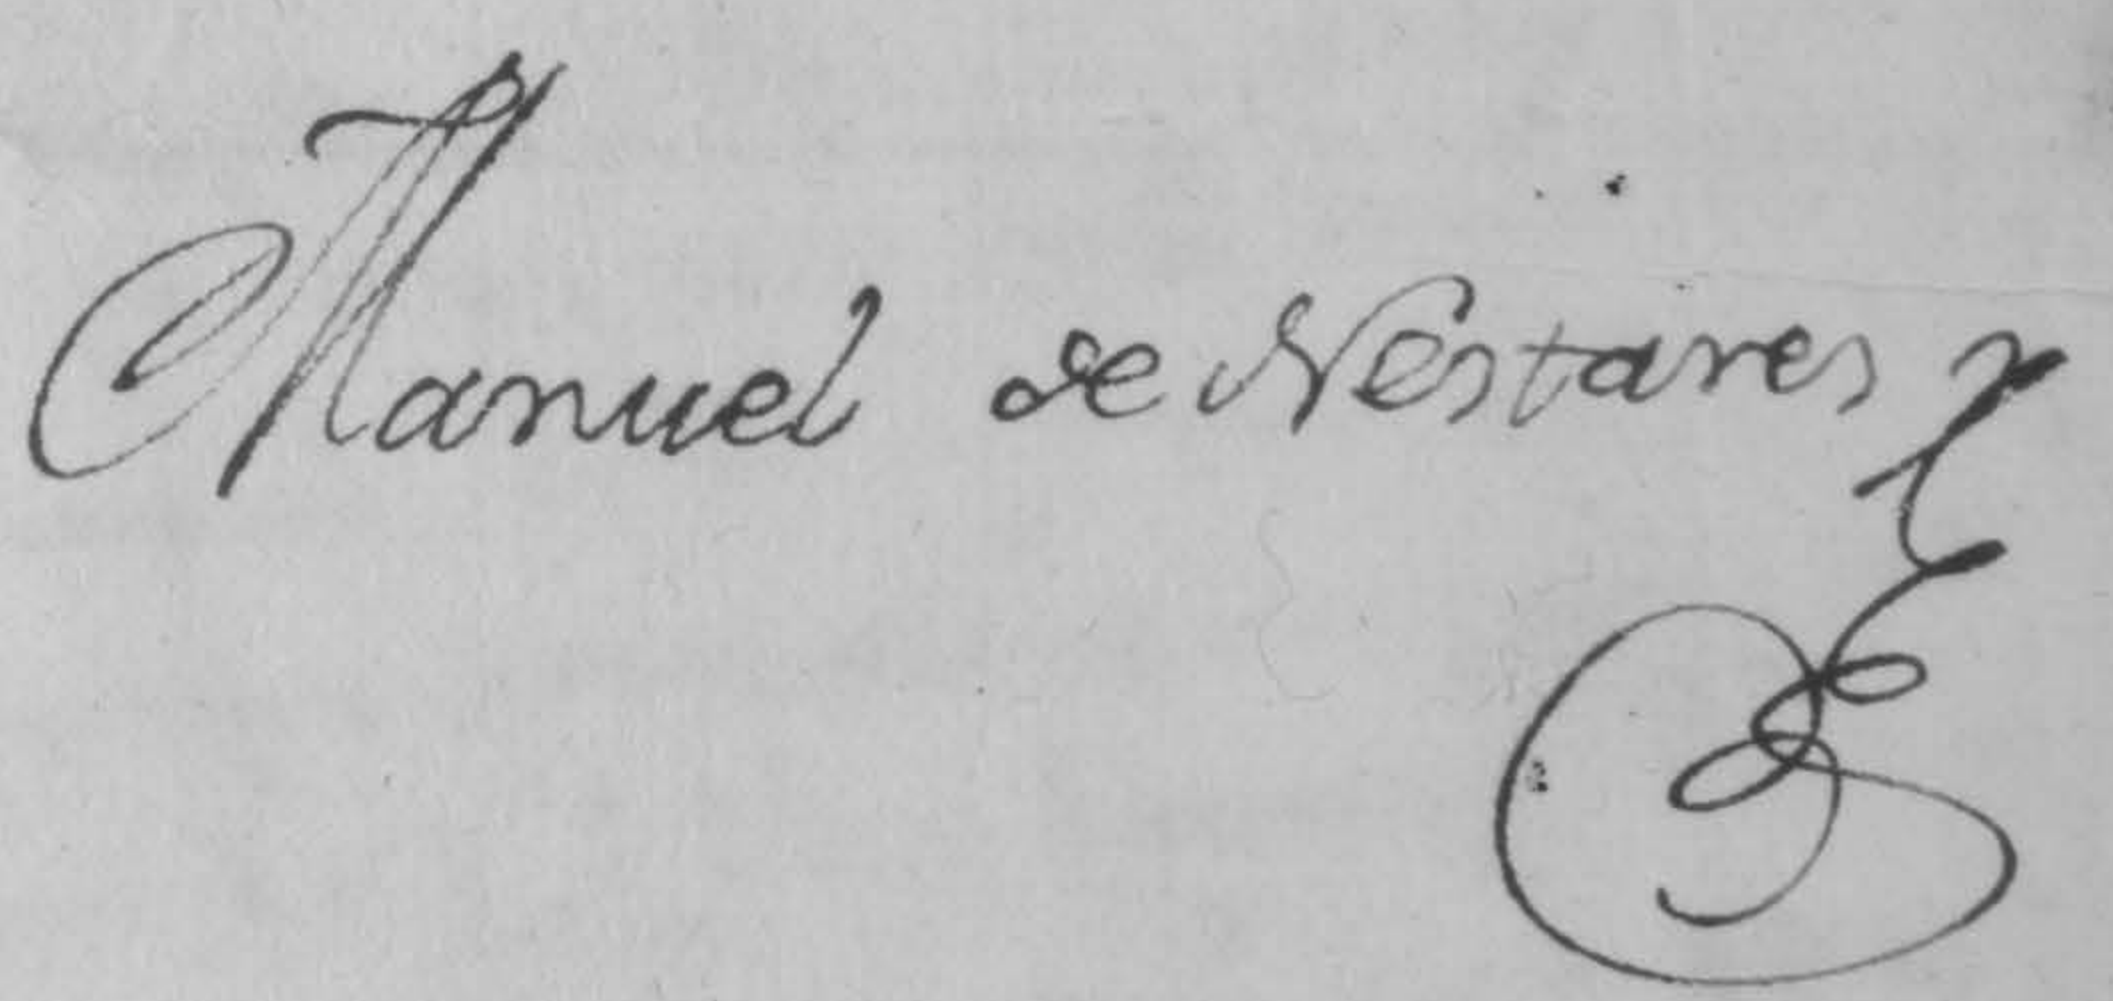 Manuel de Nestares